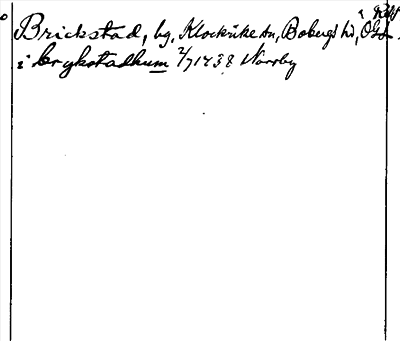 Brickstad, bg, Klockrike sn, Bobergs hd, Ög.
i brykstadhum 2/7 1438 Norrby